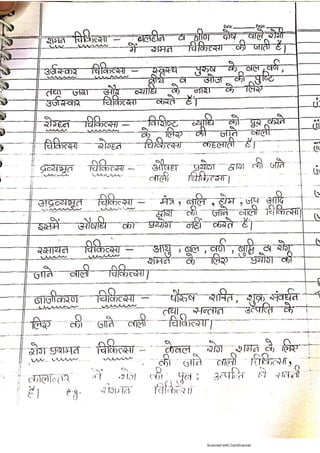 Date Page
शमन चिकित्सा - बलहीन व क्षीण दोष वाले रोगी
में शमन चिकित्सा की जाती है।
उर्जस्कर चिकित्सा - स्वस्थ पुरुष के बल, वर्ण,
वीर्य व ओज की पुष्टि
तथा जरा और व्याधि के नाश के लिए
उर्जस्कर चिकित्सा करते हैं।
रोगहन चिकित्सा - विशिष्ट व्याधि को दूर करने
के लिए की जाने वाली
चिकित्सा रोगहन चिकित्सा कहलाती है।
द्रव्यभूत चिकित्सा - औषध प्रयोग द्वारा की जाने
वाली चिकित्सा।
अद्रव्यभूत चिकित्सा - मंत्र, बलि, होम, जप आदि
द्वारा की जाने वाली चिकित्सा
इसमें औषधि का प्रयोग नहीं करते हैं।
रसायन चिकित्सा - आयु, बल, वर्ण, व रोग
शमन के लिए प्रयोग की
जाने वाली चिकित्सा।
बाजीकरण चिकित्सा - पौरुष शक्ति, शुक्र संवर्धन
तथा सन्तान उत्पत्ति के
लिए की जाने वाली चिकित्सा।
रोग प्रशमन चिकित्सा - केवल रोग शमन के लिए
की जाने वाली चिकित्सा,
कालान्तर में रोग की पुन: उत्पत्ति हो सकती
है। eg: संशमन चिकित्सा
Scanned with CamScanner